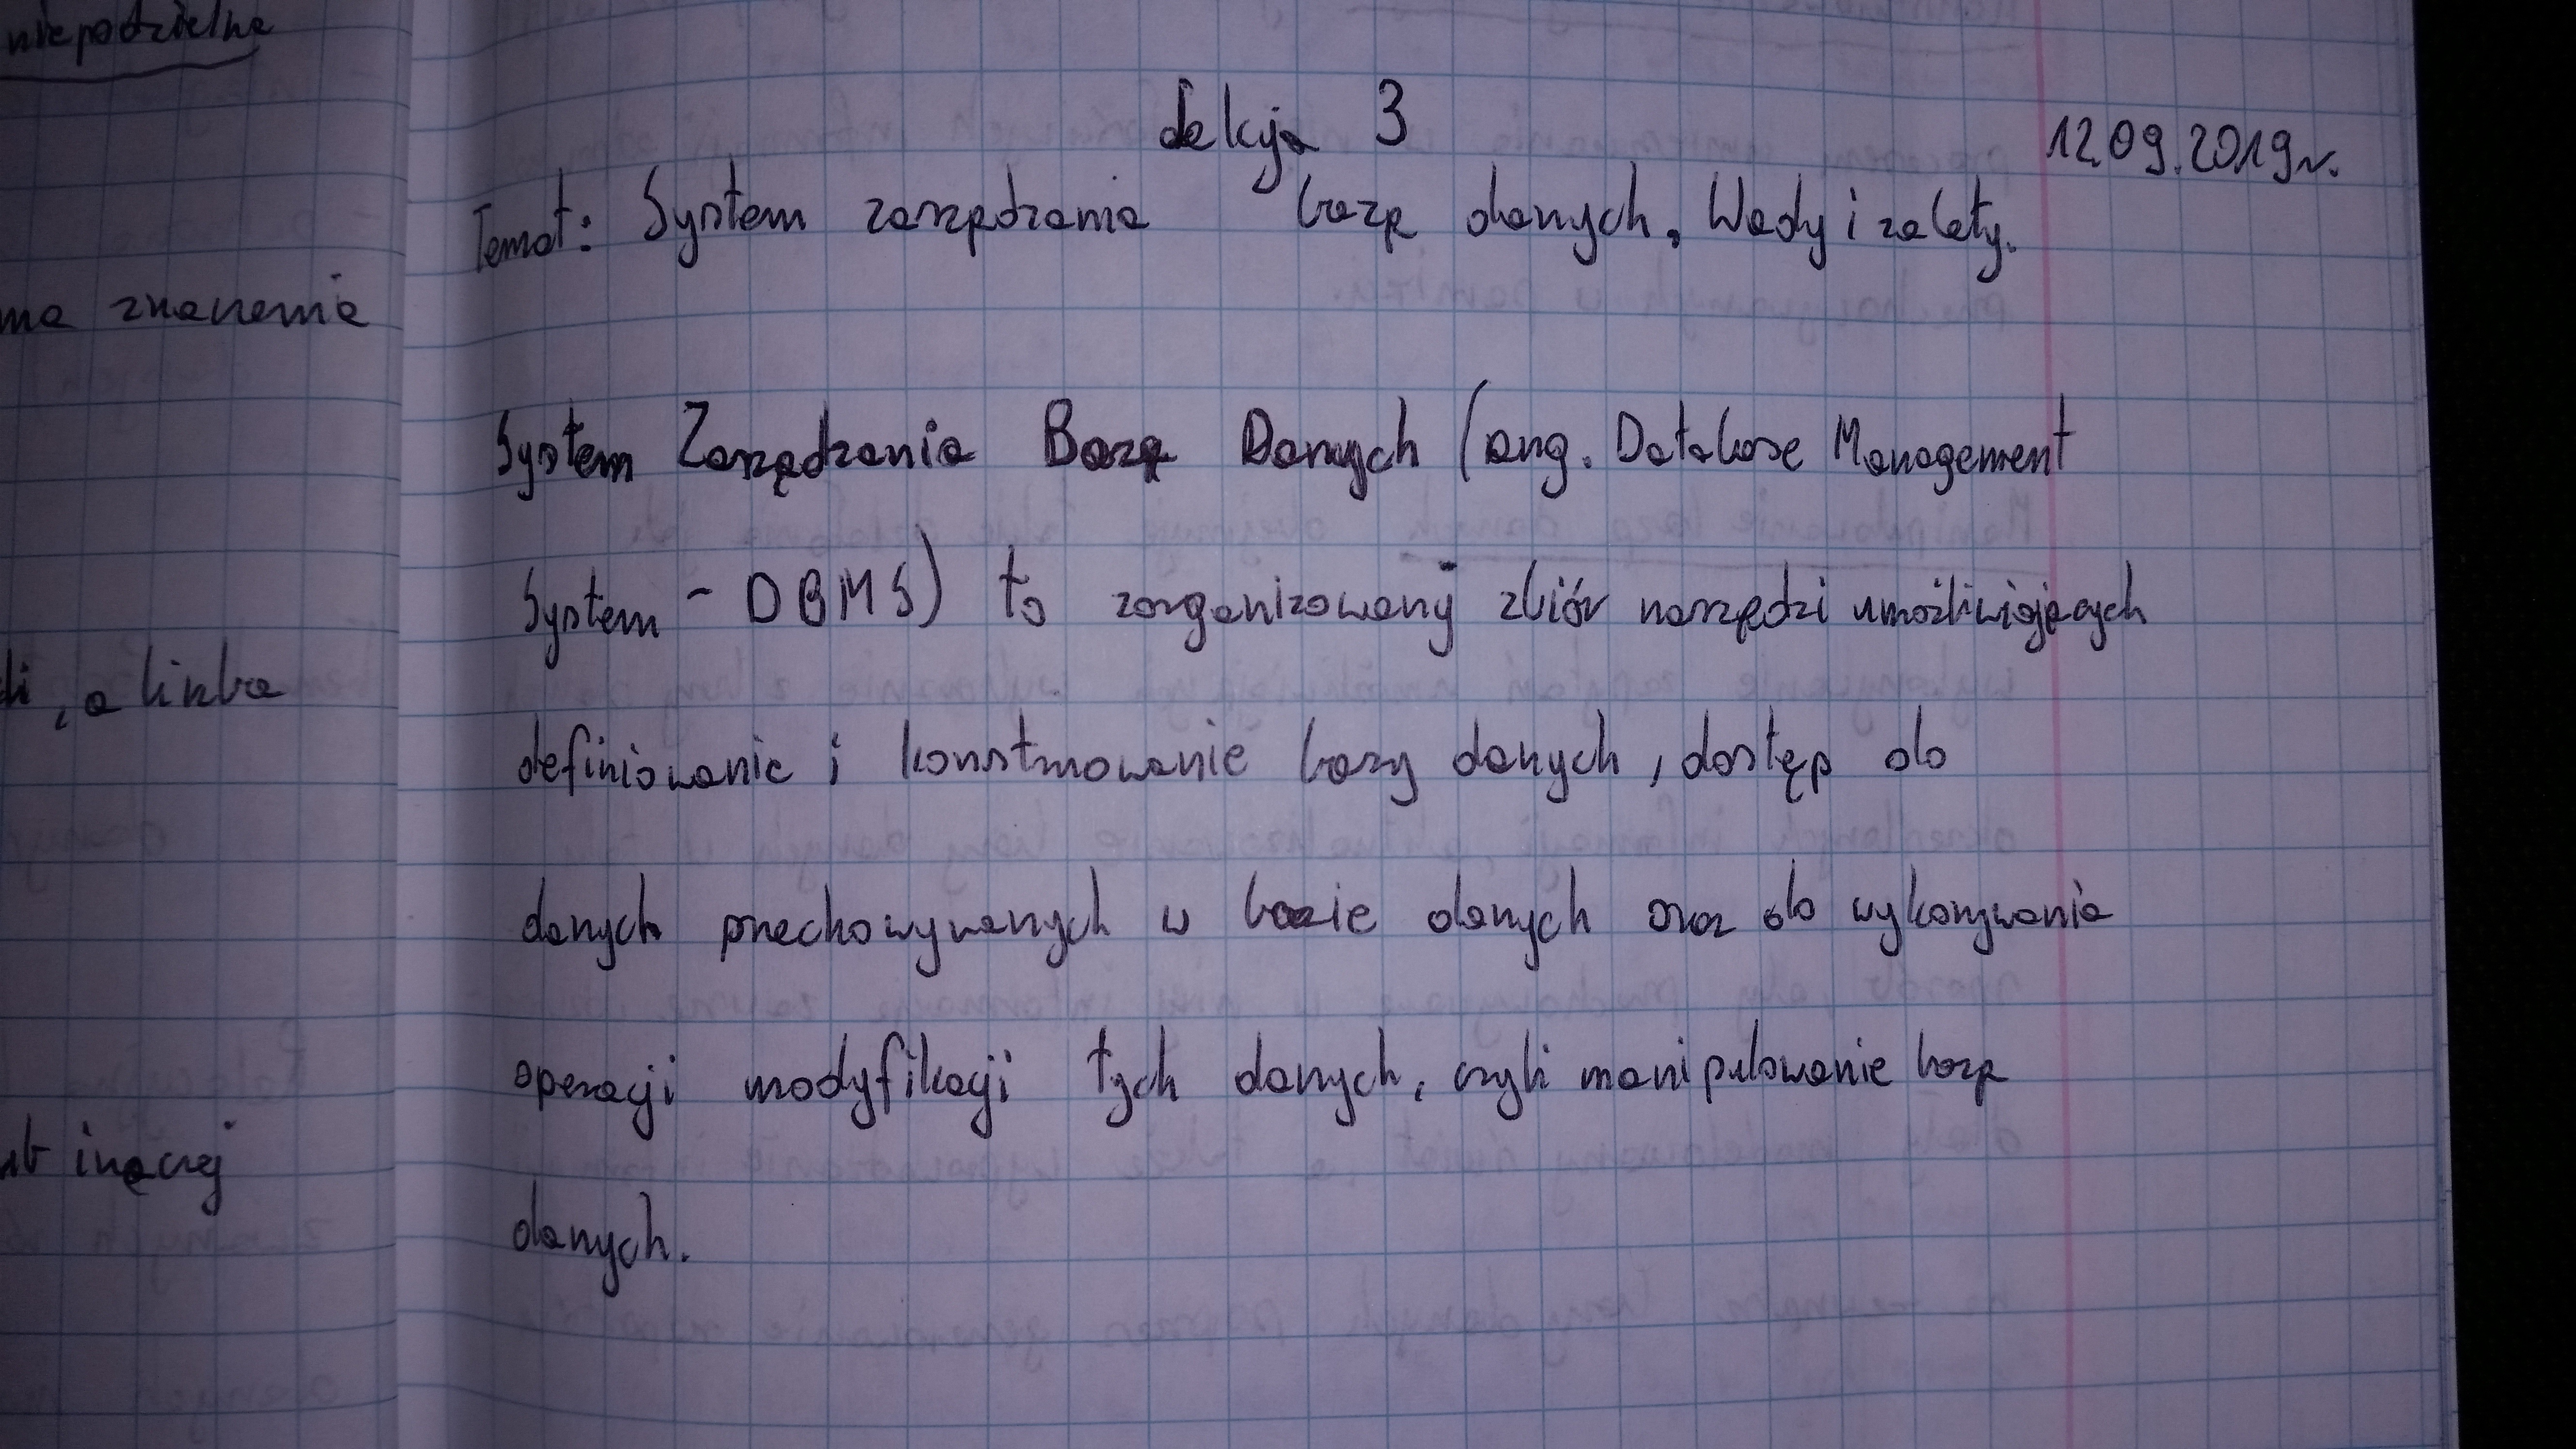 niepodzielne
ma znaczenie
, a liczba
inaczej
Lekcja 3
12.09.2019r.
Temat: System zarządzania bazą danych. Wady i zalety.
System Zarządzania Bazą Danych (ang. Database Management
System - DBMS) to zorganizowany zbiór narzędzi umożliwiających
definiowanie i konstruowanie bazy danych, dostęp do
danych przechowywanych w bazie danych oraz do wykonywania
operacji modyfikacji tych danych, czyli manipulowanie bazą
danych.